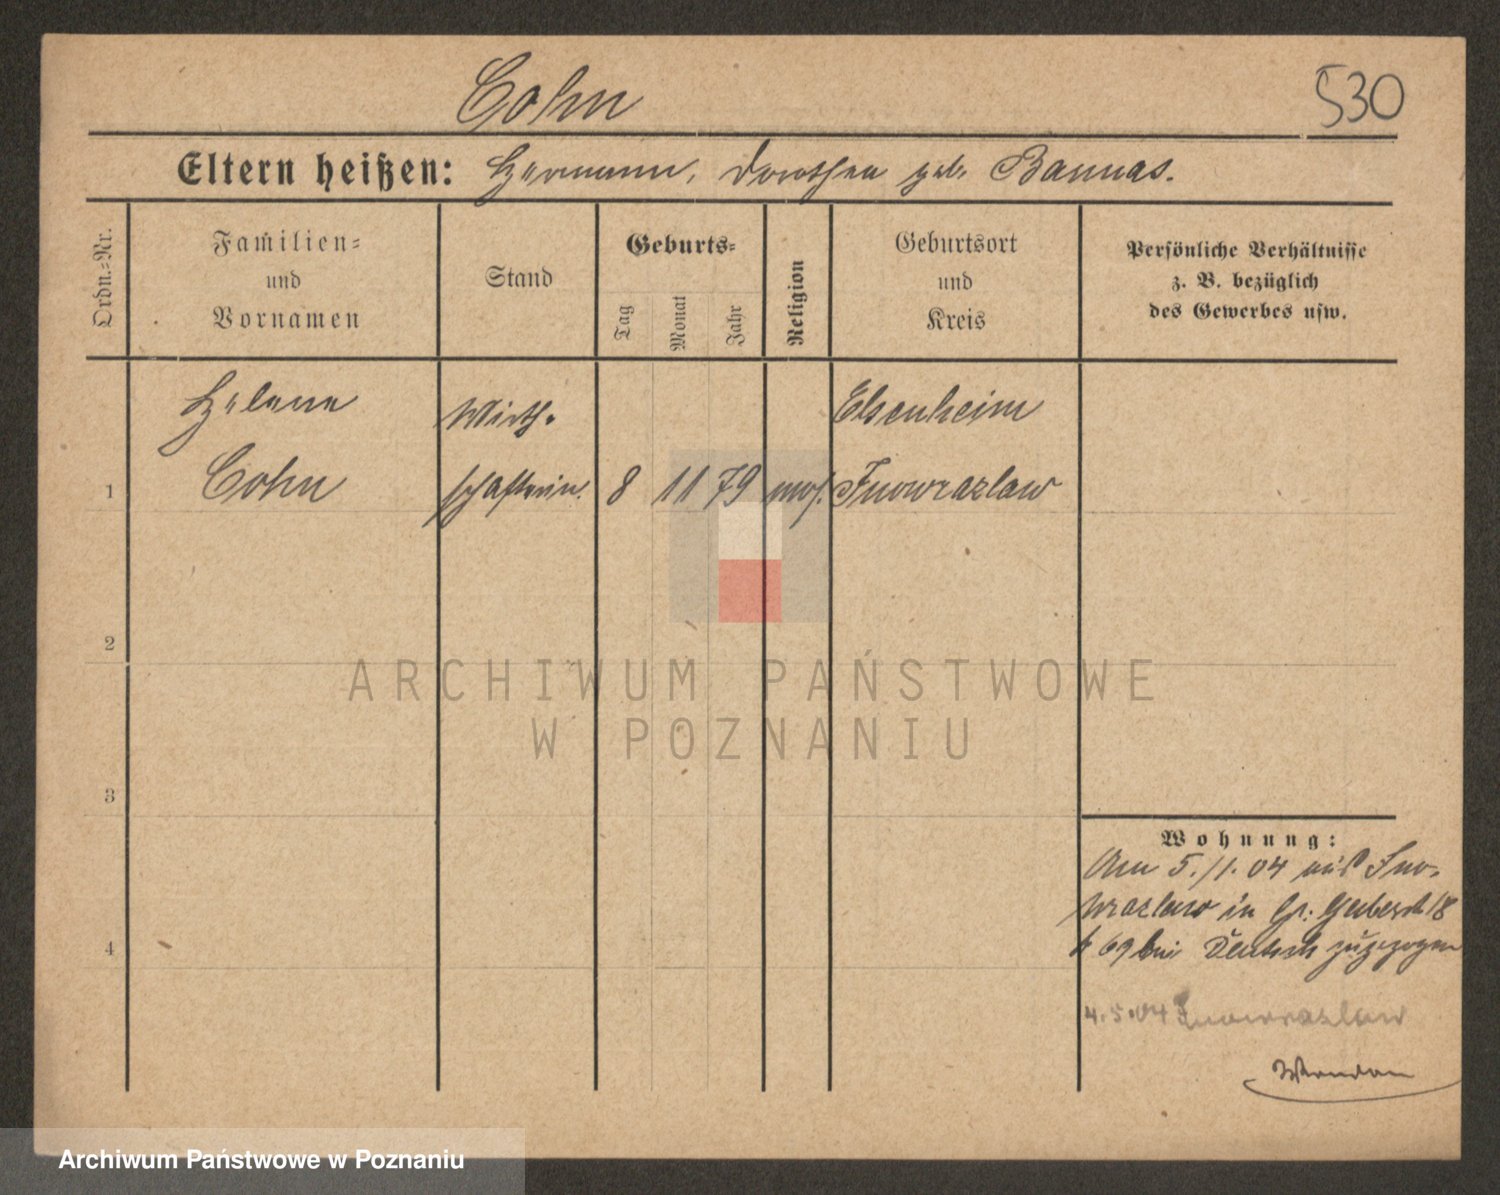 Cohn 530
Eltern heißen: Hermann, Dorothea geb. Bannas.
Ordn.=Nr.
Familien=
und
Vornamen
Stand
Geburts=
Tag
Monat
Jahr
Religion
Geburtsort
und
Kreis
Persönliche Verhältnisse
z. B. bezüglich
des Gewerbes usw.
Helene Wirth- Elsenheim
1 Cohn schafterin. 8 11 79 mos. Inowrazlaw
2
ARCHIWUM PAŃSTWOWE
W POZNANIU
3
Wohnung:
Am 5./1. 04 aus Ino-
wrazlaw in Gr. 18
b 69 bei Deutsch zugezogen
4
4.5.04 Inowrazlaw
Archiwum Państwowe w Poznaniu